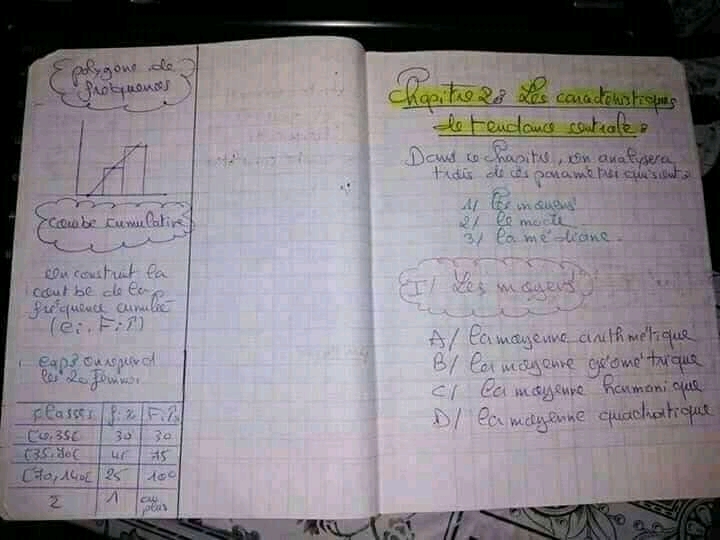 polygone de
fréquences
courbe cumulative
on construit la
courbe de la
fréquence cumulée
(ei, Fi↑)
les 20 femmes
classes fi% Fi%
[0,35[ 30 30
[35,70[ 45 75
[70,140[ 25 100
Σ 1 au plus
Chapitre 2: Les caractéristiques
de tendance centrale:
Dans ce chapitre, on analysera
trois de ces paramètres qui sont:
1/ Les moyens
2/ le mode
3/ la médiane.
I/ Les moyens
A/ la moyenne arithmétique
B/ la moyenne géométrique
C/ la moyenne harmonique
D/ la moyenne quadratique